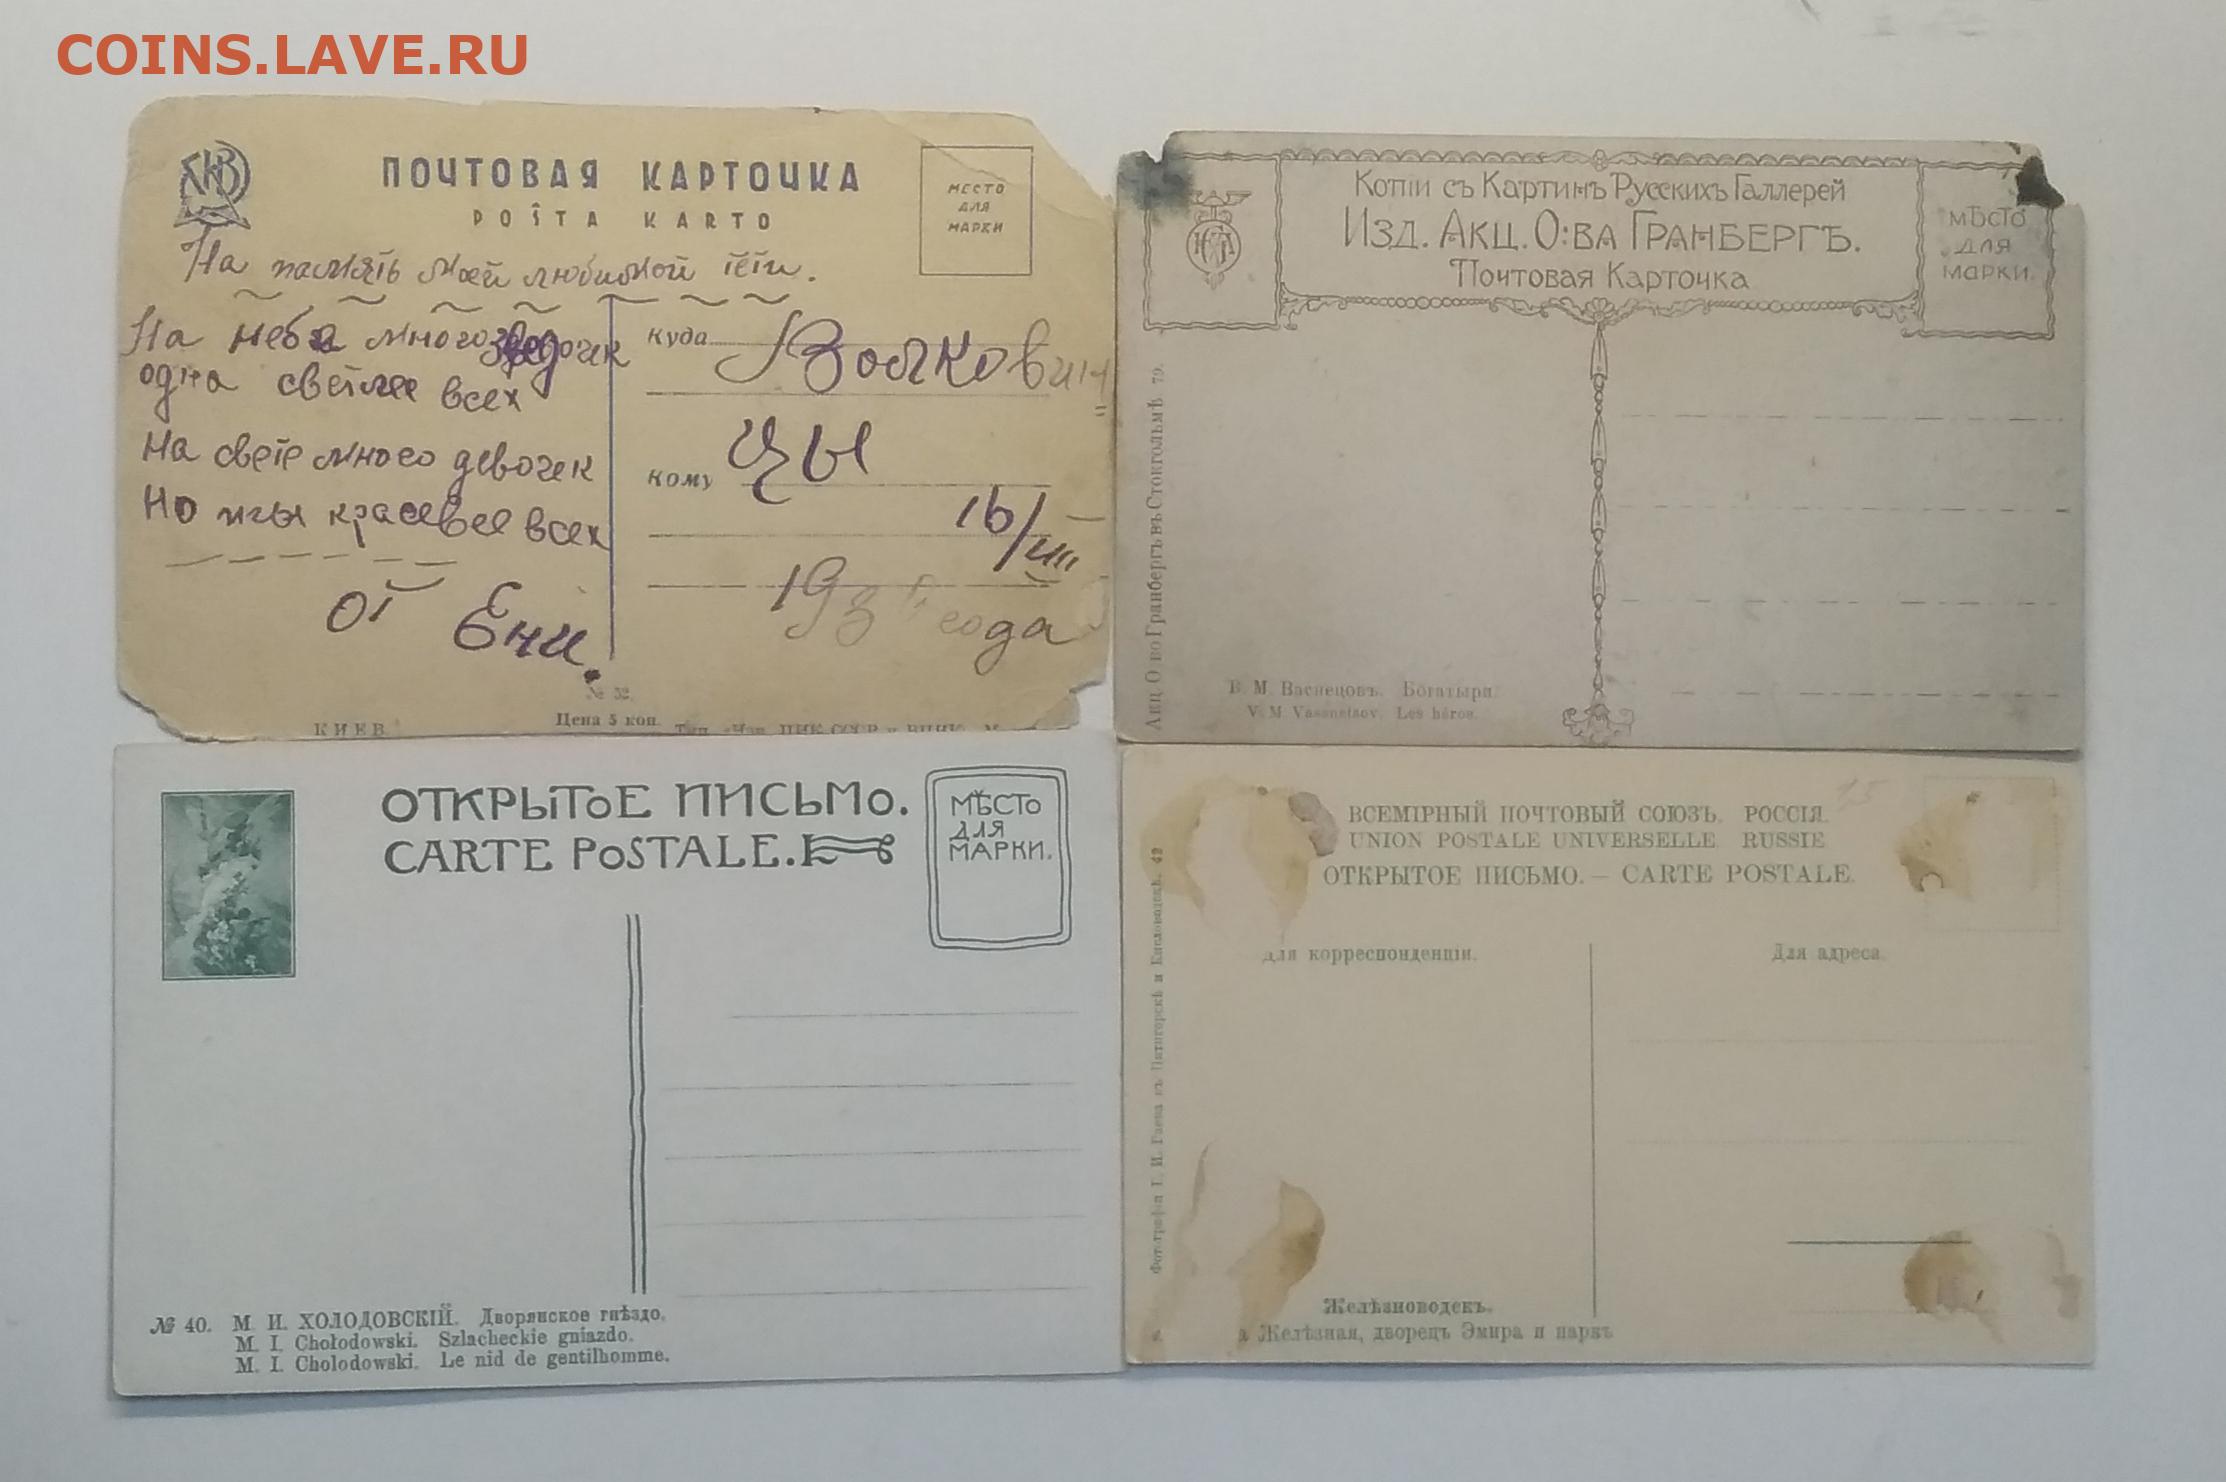 COINS.LAVE.RU
ПОЧТОВАЯ КАРТОЧКА
POŜTA KARTO
МЕСТО
ДЛЯ
МАРКИ
На память моей любимой тёти.
На небе много звёздочек
одна светлее всех
На свете много девочек
Но ты красевее всех
от Ени.
Куда Волковин
цы
Кому
16/III
193 года
№ 52.
КИЕВ.
Цена 5 коп.
Тип. «Изв. ЦИК СССР и ВЦИК» М
Копіи съ Картинъ Русскихъ Галлерей
Изд. Акц. О:ва Гранбергъ.
Почтовая Карточка
МѢСТО
ДЛЯ
МАРКИ.
Акц. О-во Гранбергъ въ Стокгольмѣ 79.
В. М. Васнецовъ. Богатыри.
V. M. Vasnetsov. Les héros.
ОТКРЫТОЕ ПИСЬМО.
CARTE POSTALE.
МѢСТО
ДЛЯ
МАРКИ.
№ 40. М. И. ХОЛОДОВСКІЙ. Дворянское гнѣздо.
M. I. Chołodowski. Szlacheckie gniazdo.
M. I. Cholodowski. Le nid de gentilhomme.
15
ВСЕМІРНЫЙ ПОЧТОВЫЙ СОЮЗЪ. РОССІЯ.
UNION POSTALE UNIVERSELLE. RUSSIE
ОТКРЫТОЕ ПИСЬМО. — CARTE POSTALE.
Для корреспонденціи.
Для адреса.
Фототрафія Г. И. Гаева въ Пятигорскѣ и Кисловодскѣ. 42
Желѣзноводскъ.
Желѣзная, дворецъ Эмира и паркъ